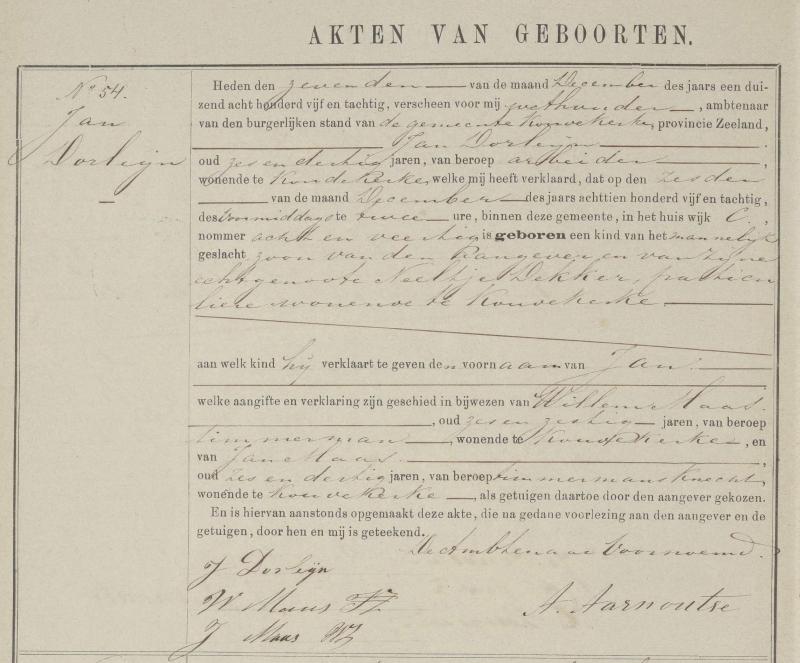 AKTEN VAN GEBOORTEN.
No 54.
Jan
Dorleijn
Heden den zevenden van de maand December des jaars een dui-
zend acht honderd vijf en tachtig, verscheen voor mij wethouder, ambtenaar
van den burgerlijken stand van de gemeente Koudekerke, provincie Zeeland,
Jan Dorleijn
oud zes en dertig jaren, van beroep arbeider,
wonende te Koudekerke, welke mij heeft verklaard, dat op den zesden
van de maand December des jaars achttien honderd vijf en tachtig,
des voormiddags te twee ure, binnen deze gemeente, in het huis wijk C,
nommer acht en veertig is geboren een kind van het mannelijk
geslacht, zoon van den aangever en van zijne
echtgenoote Neeltje Dekker, particu
liere wonende te Koudekerke
aan welk kind hij verklaart te geven den voornaam van Jan.
welke aangifte en verklaring zijn geschied in bijwezen van Willem Maas
, oud zes en zestig jaren, van beroep
timmerman, wonende te Koudekerke, en
van Jan Maas,
oud zes en dertig jaren, van beroep timmermansknecht,
wonende te Koudekerke, als getuigen daartoe door den aangever gekozen.
En is hiervan aanstonds opgemaakt deze akte, die na gedane voorlezing aan den aangever en de
getuigen, door hen en mij is geteekend.
De Ambtenaar Voornoemd.
J Dorleijn
W Maas
A. Aarnoutse
J Maas WZ